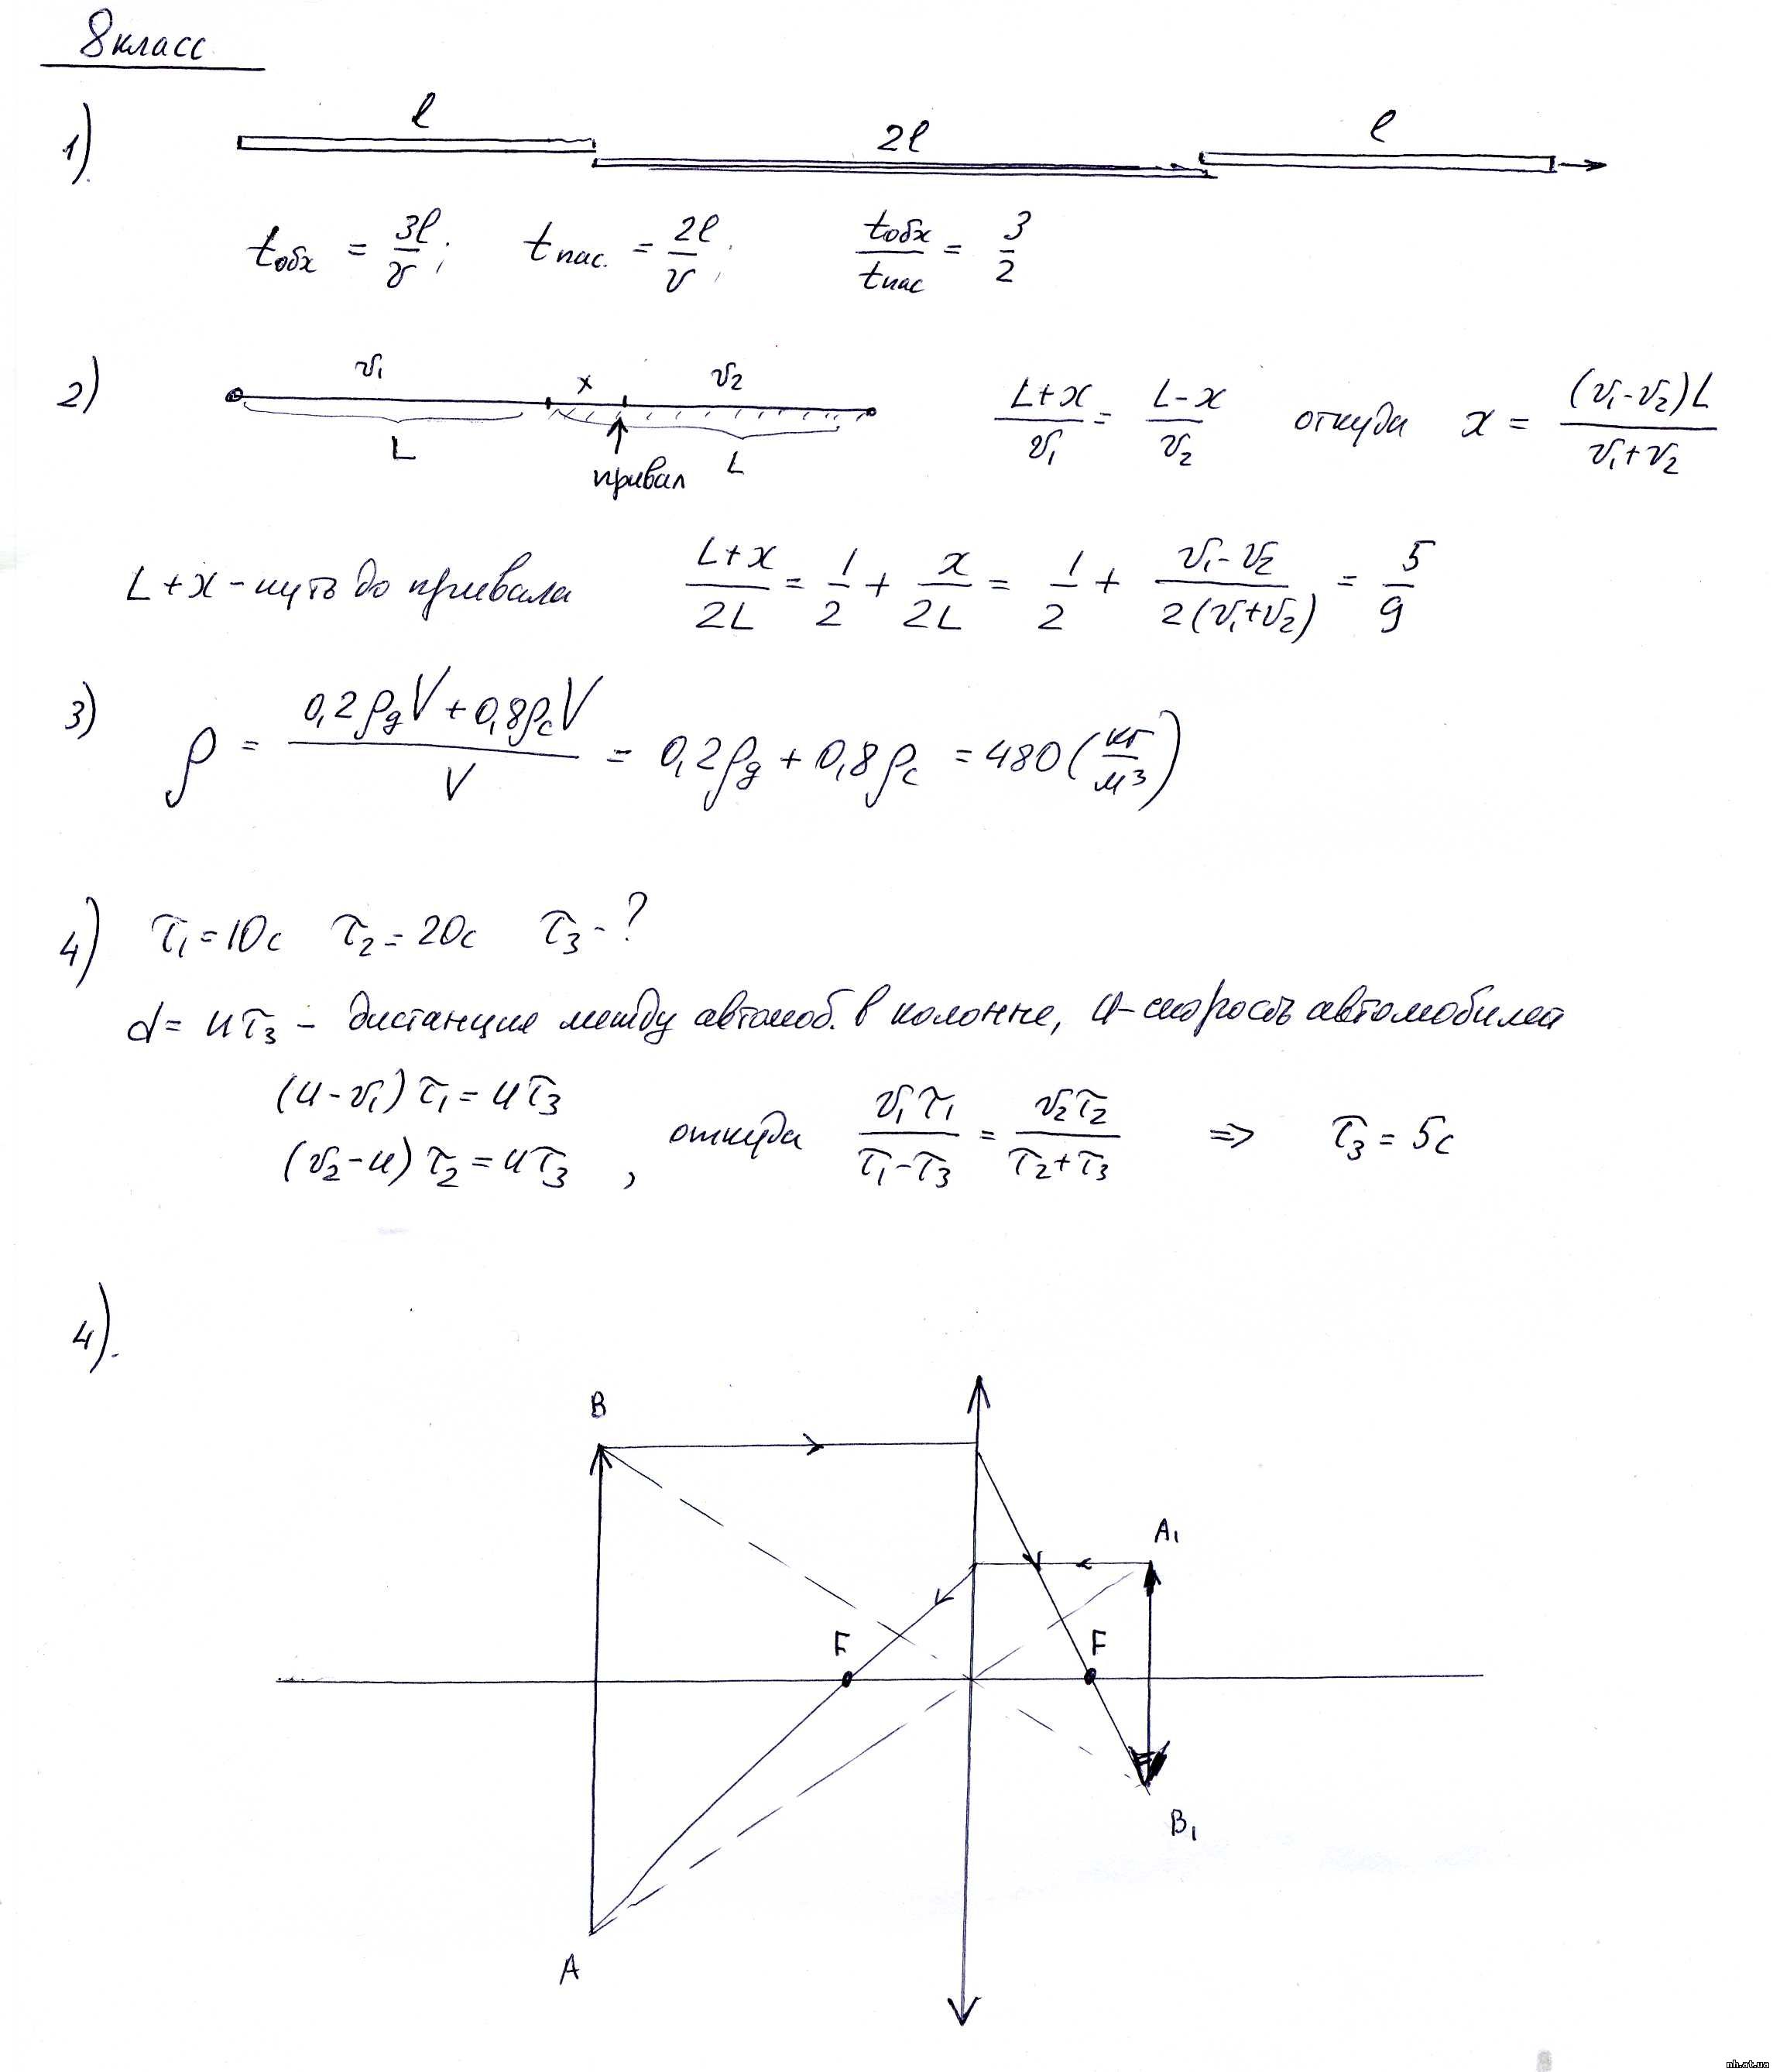 8 класс
1).
l 2l l
tобх = 3l/v; tпас. = 2l/v; tобх/tпас = 3/2
2) v₁ x v₂
L привал L
(L+x)/v₁ = (L-x)/v₂ откуда x = (v₁-v₂)L/(v₁+v₂)
L+x - путь до привала (L+x)/2L = 1/2 + x/2L = 1/2 + (v₁-v₂)/2(v₁+v₂) = 5/9
3) ρ = (0,2ρдV + 0,8ρсV)/V = 0,2ρд + 0,8ρс = 480 (кг/м³)
4) τ₁ = 10с τ₂ = 20с τ₃ - ?
d = uτ₃ - дистанция между автомоб. в колонне, u - скорость автомобилей
(u-v₁)τ₁ = uτ₃
(v₂-u)τ₂ = uτ₃ , откуда v₁τ₁/(τ₁-τ₃) = v₂τ₂/(τ₂+τ₃) => τ₃ = 5с
4).
B
A₁
F F
B₁
A
nh.at.ua